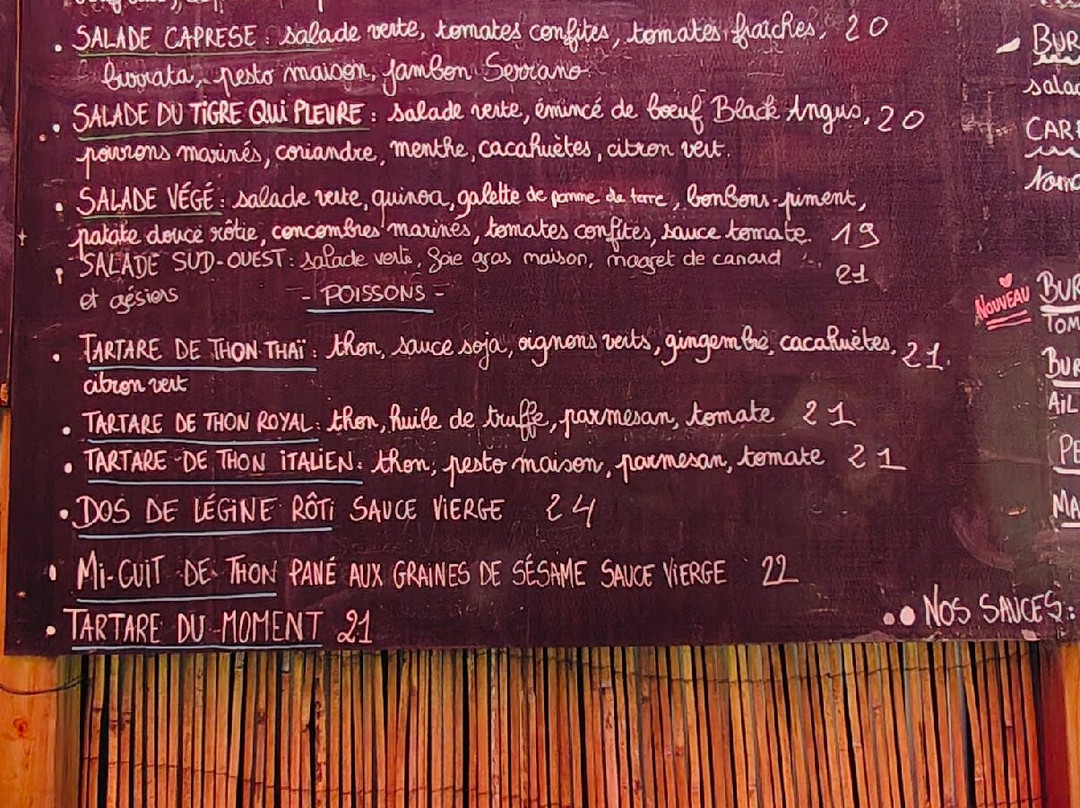 . SALADE CAPRESE : salade verte, tomates confites, tomates fraîches, 20
burrata, pesto maison, jambon Serrano
. SALADE DU TIGRE QUI PLEURE : salade verte, émincé de boeuf Black Angus, 20
poivrons marinés, coriandre, menthe, cacahuètes, citron vert.
. SALADE VÉGÉ : salade verte, quinoa, galette de pomme de terre, bonbons-piment,
patate douce rôtie, concombres marinés, tomates confites, sauce tomate. 19
. SALADE SUD-OUEST : salade verte, foie gras maison, magret de canard
et gésiers 21
- POISSONS -
. TARTARE DE THON THAÏ : thon, sauce soja, oignons verts, gingembre, cacahuètes, 21
citron vert
. TARTARE DE THON ROYAL : thon, huile de truffe, parmesan, tomate 21
. TARTARE DE THON ITALIEN : thon, pesto maison, parmesan, tomate 21
. DOS DE LÉGINE RÔTI SAUCE VIERGE 24
. MI-CUIT DE THON PANÉ AUX GRAINES DE SÉSAME SAUCE VIERGE 22
. TARTARE DU MOMENT 21
NOUVEAU
NOS SAUCES :